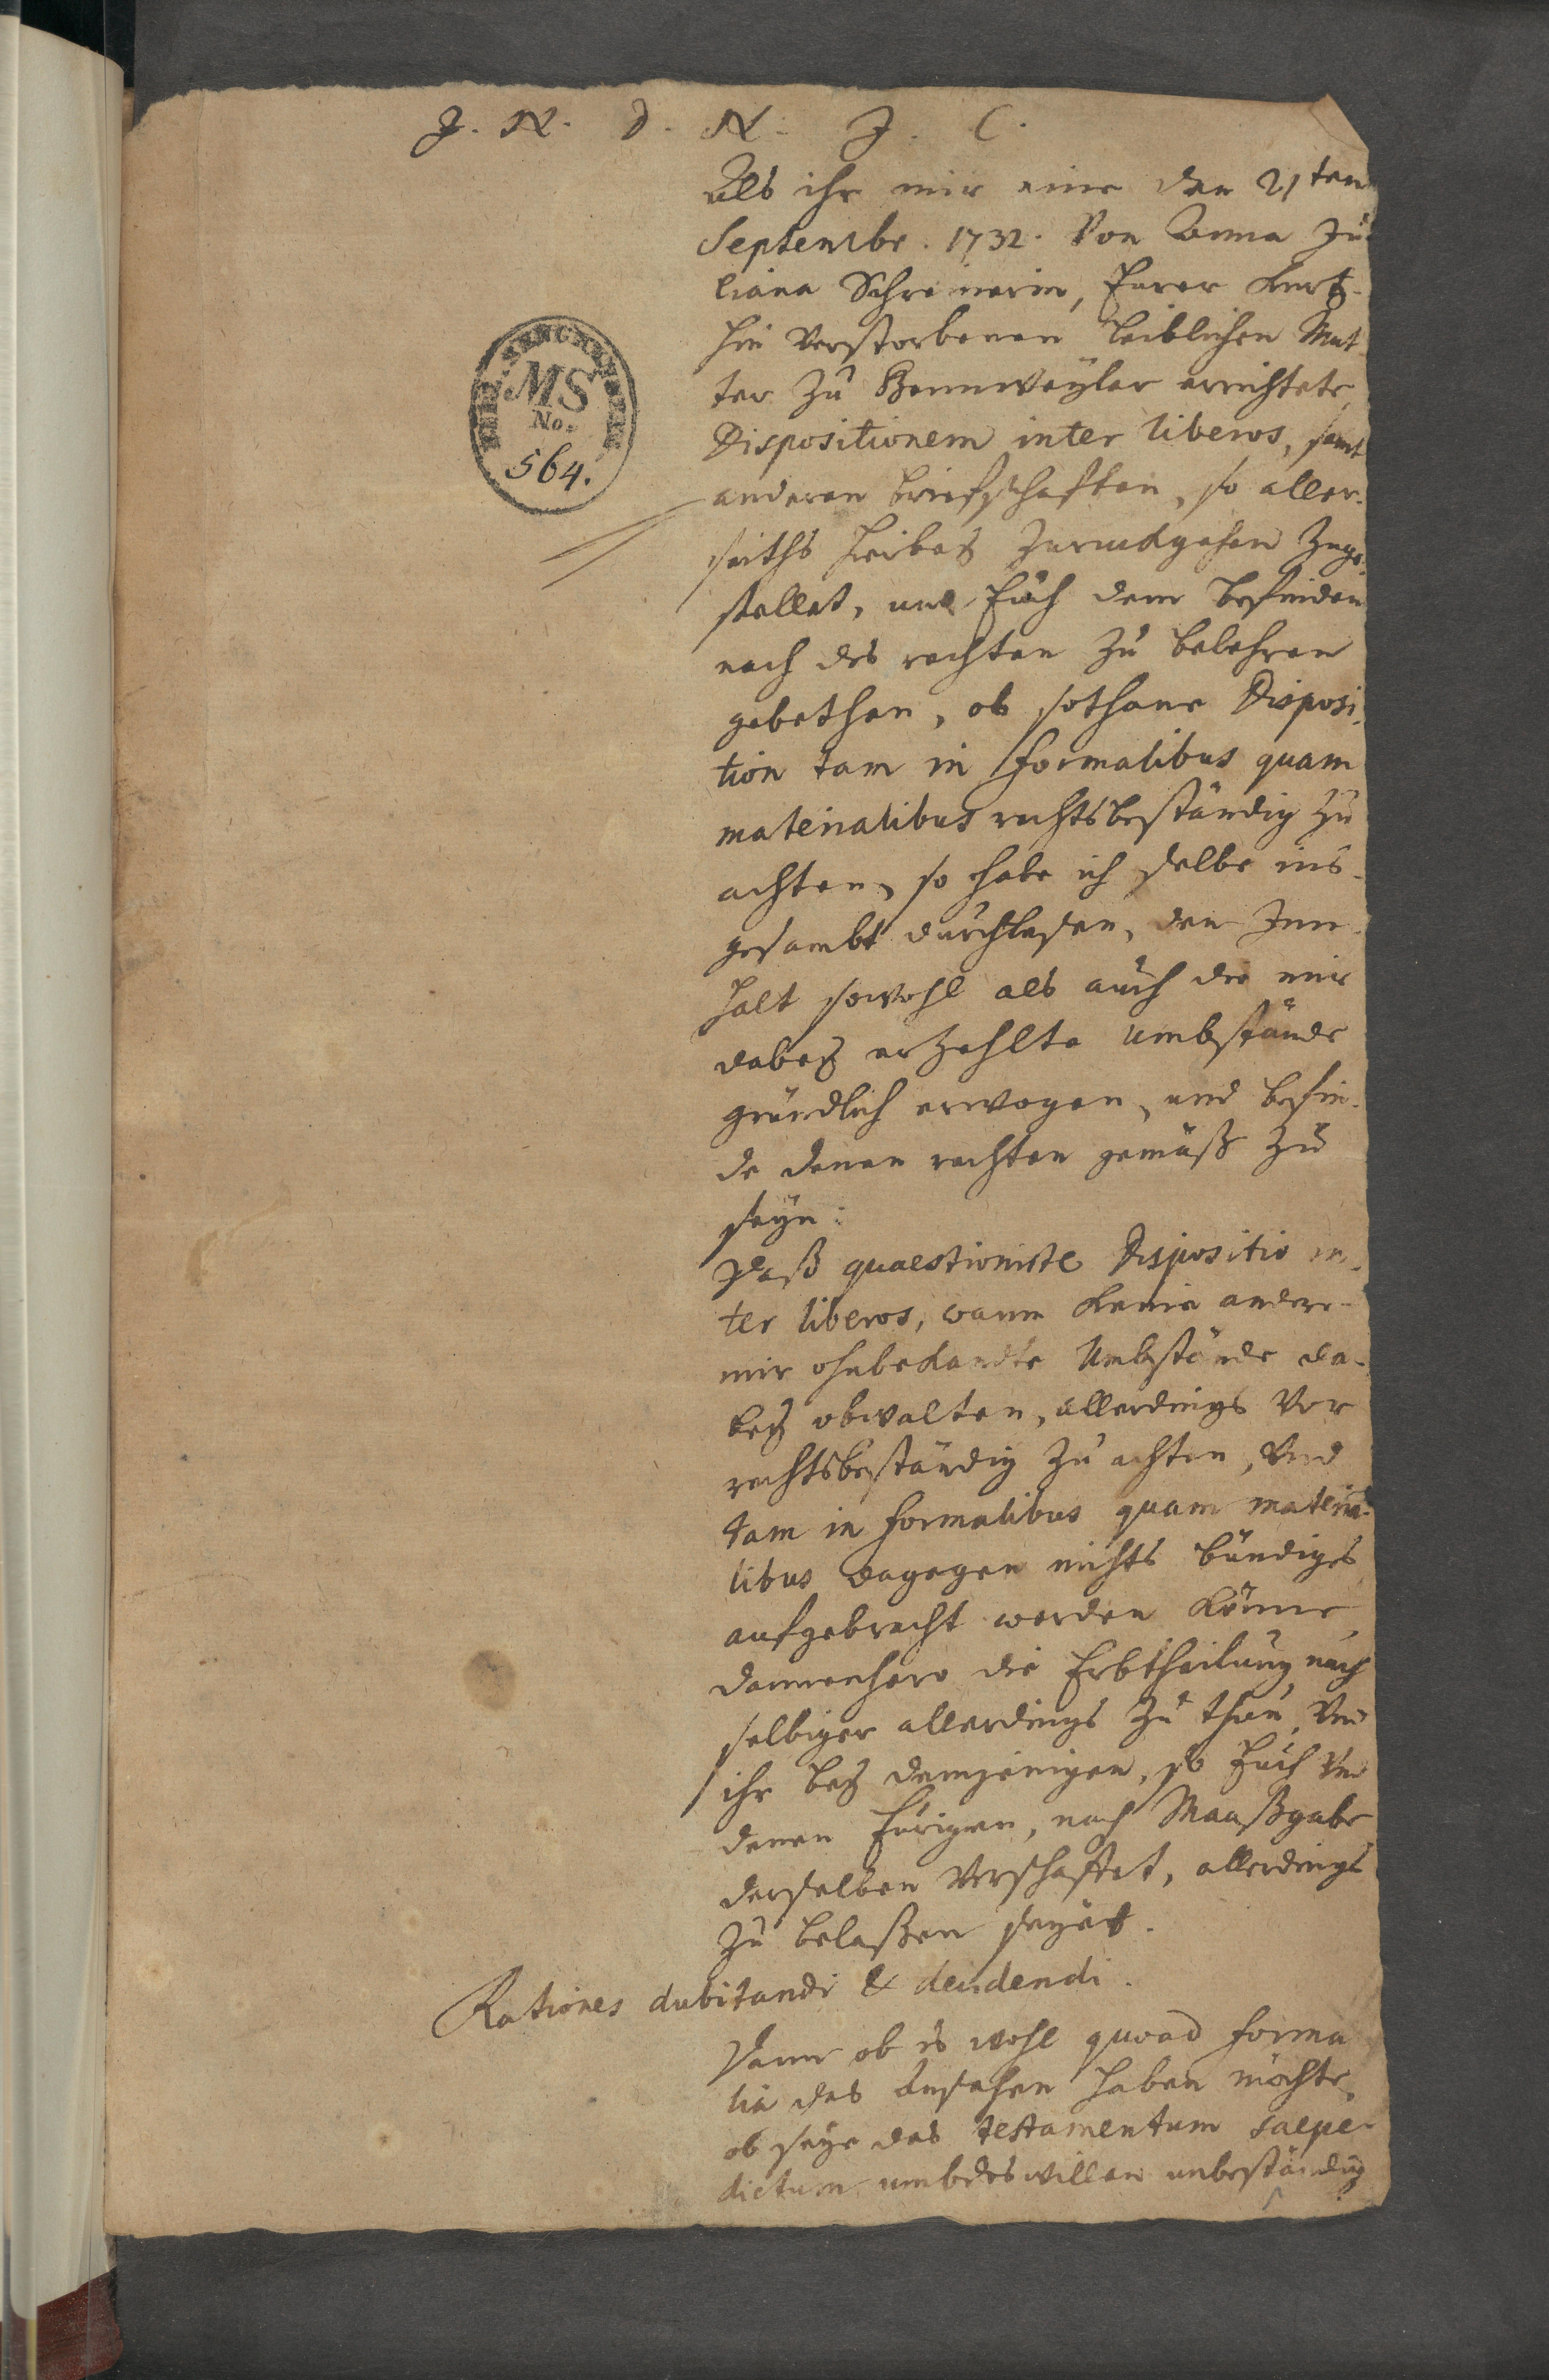 J. N. D. N. J. C.
Als ihr mir eine den 21ten
Septembr. 1732. Von Anna Ju
liana Schreinerin, Eurer kurtz-
hin verstorbenen leiblichen Mut
ter zu Bonnweyler errichtete
Dispositionem inter liberos, samt
anderen briefschafften, so aller-
seiths hierbey zuruckgehen zuge-
stellet, und Euch dem befinden
nach des rechten zu belehren
gebethen, ob sothane Disposi
tion tam in formalibus quam
materialibus rechtsbeständig zu
achten, so habe ich selbe ins-
gesambt durchlesen, den Inn-
halt sowohl als auch die mir
dabey erzehlte Umbstände
gründlich erwogen, und befin-
de denen rechten gemäß zu
seyn:
Daß quaestionirte Dispositio in-
ter liberos, wann keine andere
mir ohnbekandte Umbstände da-
bey obwalten, allerdings Vor
rechtsbeständig zu achten, Und
tam in formalibus quam materia-
libus dagegen nichts bündiges
aufgebracht werden könne,
dannenhero die Erbtheilung nach
selbiger allerdings zu thun, Und
ihr bey demjenigen, so Euch und
denen Eurigen, nach Maaßgabe
derselben Verschafft, allerdings
zu belaßen seyet.
Rationes dubitandi & decidendi.
Dann ob es wohl quoad forma
lia das Ansehen haben möchte,
ob seye das testamentum saepe
dictum umbdeswillen unbeständig
MS
No.
564.